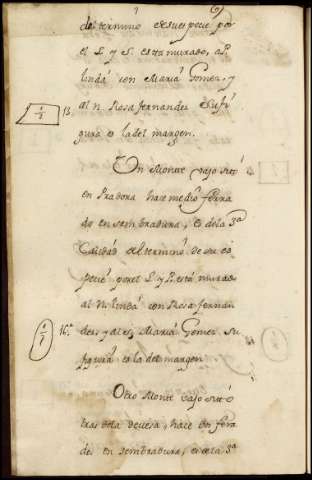 del termino de su especie por
el L. y S. esta murado, a P.
linda con Maria Gomez, y
13. al N. Rosa fernandez su fi
gura es la del margen.
Un Monte vajo sito
en Pradora hace medio ferra
do en sembradura, es de la 3ª
Calidad del termino de su es
pecie por el L. y P. está murado
al N. linda con Rosa fernan
14.ª dez, y al S. Maria Gomez. su
figura es la del margen
Otro Monte vajo sito
tras de la devesa, hace un ferra
do en sembradura, es de la 3ª